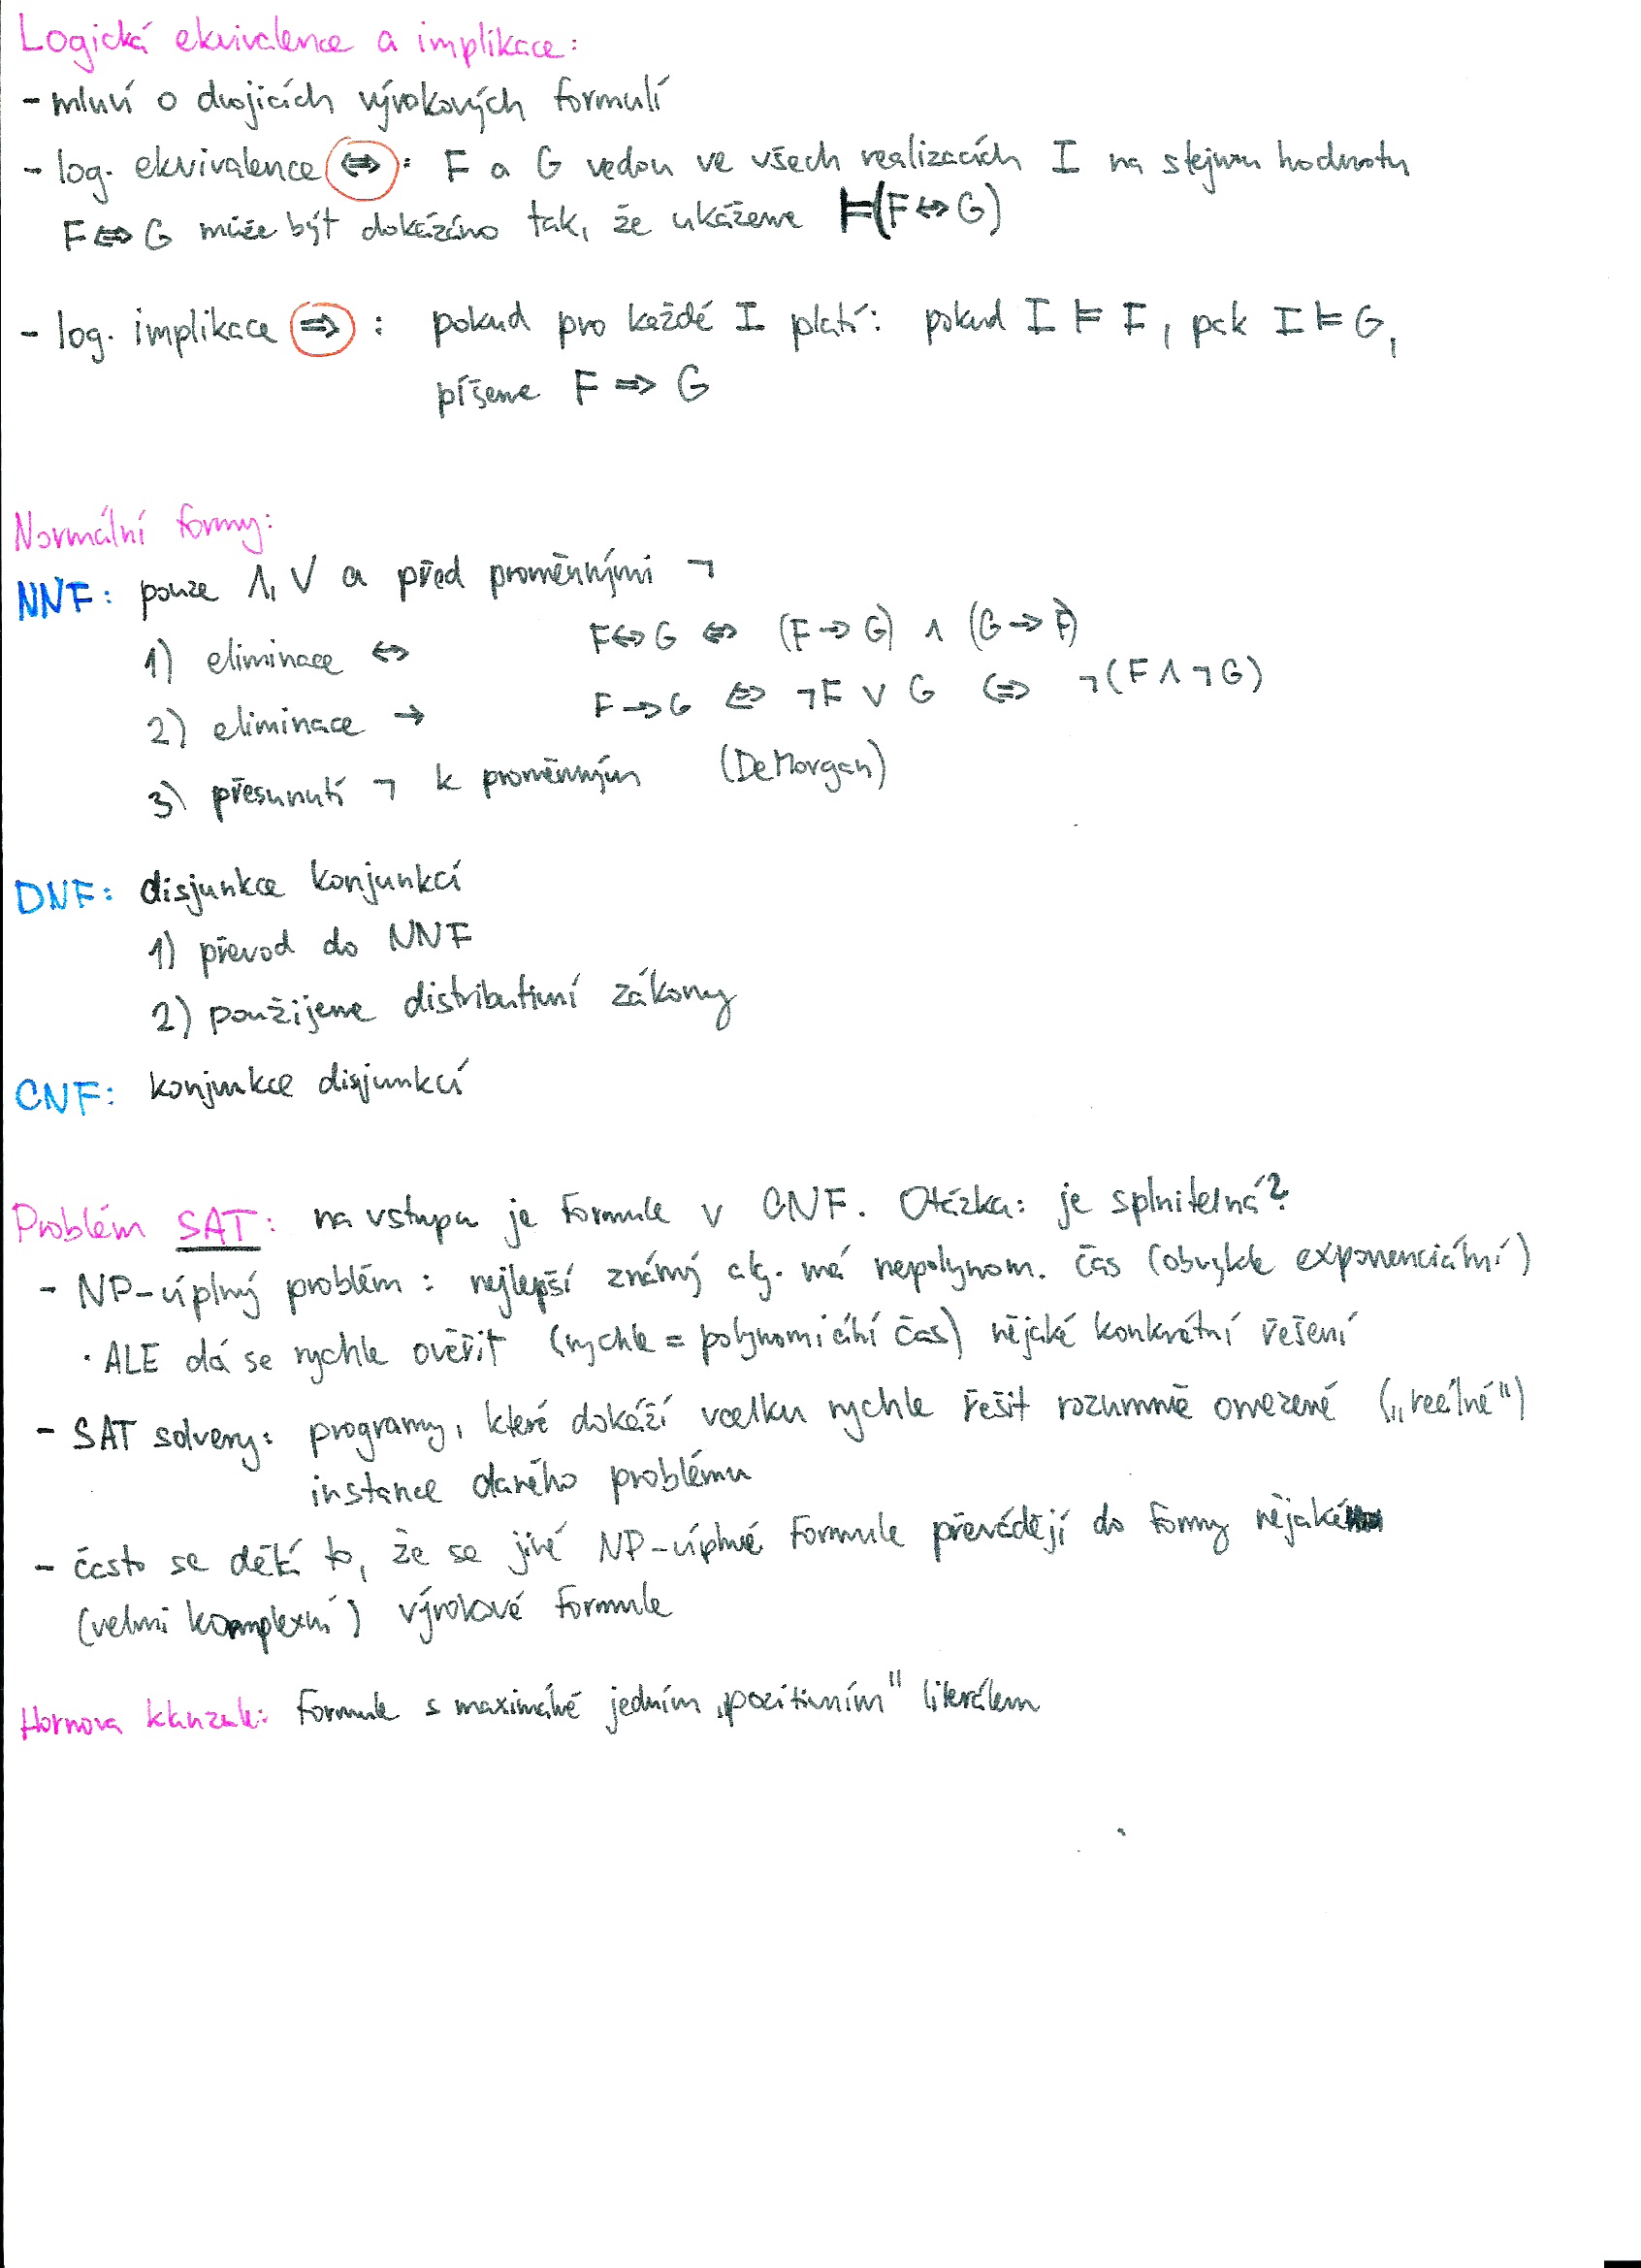 Logická ekvivalence a implikace:
- mluví o dvojicích výrokových formulí
- log. ekvivalence ⇔: F a G vedou ve všech realizacích I na stejnou hodnotu
F ⇔ G může být dokázáno tak, že ukážeme ⊨(F ↔ G)
- log. implikace ⇒ : pokud pro každé I platí: pokud I ⊨ F, pak I ⊨ G,
píšeme F ⇒ G
Normální formy:
NNF: pouze ∧, ∨ a před proměnnými ¬
1) eliminace ↔ F↔G ⇔ (F → G) ∧ (G → F)
2) eliminace → F→G ⇔ ¬F ∨ G ⇔ ¬(F ∧ ¬G)
3) přesunutí ¬ k proměnným (DeMorgan)
DNF: disjunkce konjunkcí
1) převod do NNF
2) použijeme distributivní zákony
CNF: konjunkce disjunkcí
Problém SAT: na vstupu je formule v CNF. Otázka: je splnitelná?
- NP-úplný problém: nejlepší známý alg. má nepolynom. čas (obvykle exponenciální)
· ALE dá se rychle ověřit (rychle = polynomiální čas) nějaké konkrétní řešení
- SAT solvery: programy, které dokáží vcelku rychle řešit rozumně omezené („reálné")
instance daného problému
- často se dělá to, že se jiné NP-úplné formule převádějí do formy nějaké
(velmi komplexní) výrokové formule
Hornova klauzule: formule s maximálně jedním „pozitivním" literálem